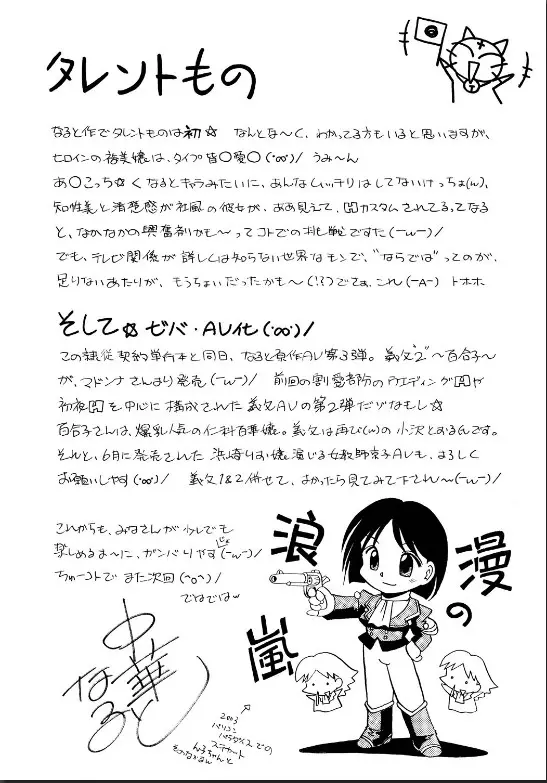 タレントもの
なると作でタレントものは初☆ なんとな〜く、わかってる方もいると思いますが、
ヒロインの裕美嬢は、タイプ皆〇愛〇(・∞・)/ うみ〜ん
あ〇こっち☆くなるとキャラみたいに、あんなムッチリはしてないけっちょ(w)、
知性美と清楚感が社風の彼女が、ああ見えて、凹カスタムされてるってなる
と、なかなかの興奮剤かも〜ってコトでの挑戦ですた(ーωー)/
でも、テレビ関係が詳しくは知らない世界なモンで、“ならでは”ってのが、
足りないあたりが、もうちょいだったかも〜(!?)でてよ、これ(ーAー) トホホ
そして☆ ゼバ・AV化(・∞・)/
この隷従契約単行本と同日、なると原作AV第3弾。義父“2”〜百合子〜
が、マドンナさんより発売(ーωー)/ 前回の割愛者防のウエディング凹や
初夜凹を中心に構成された義父AVの第2弾だゾなもし☆
百合子さんは、爆乳人気の仁科百華嬢。義父は再び(w)の小沢とおるんです。
それと、6月に発売された浜崎りお嬢演じる女教師京子AVも、よろしく
お願いしやす(・∞・)/ 義父1&2併せて、よかったら見てみて下され〜(ーωー)/
これからも、みなさんが少しでも
楽しめるよ〜に、ガンバりやす(ーωー)/
じょ
ちゅーコトで また次回(^o^)/
でわでわw
浪漫の嵐
中華なると
2003